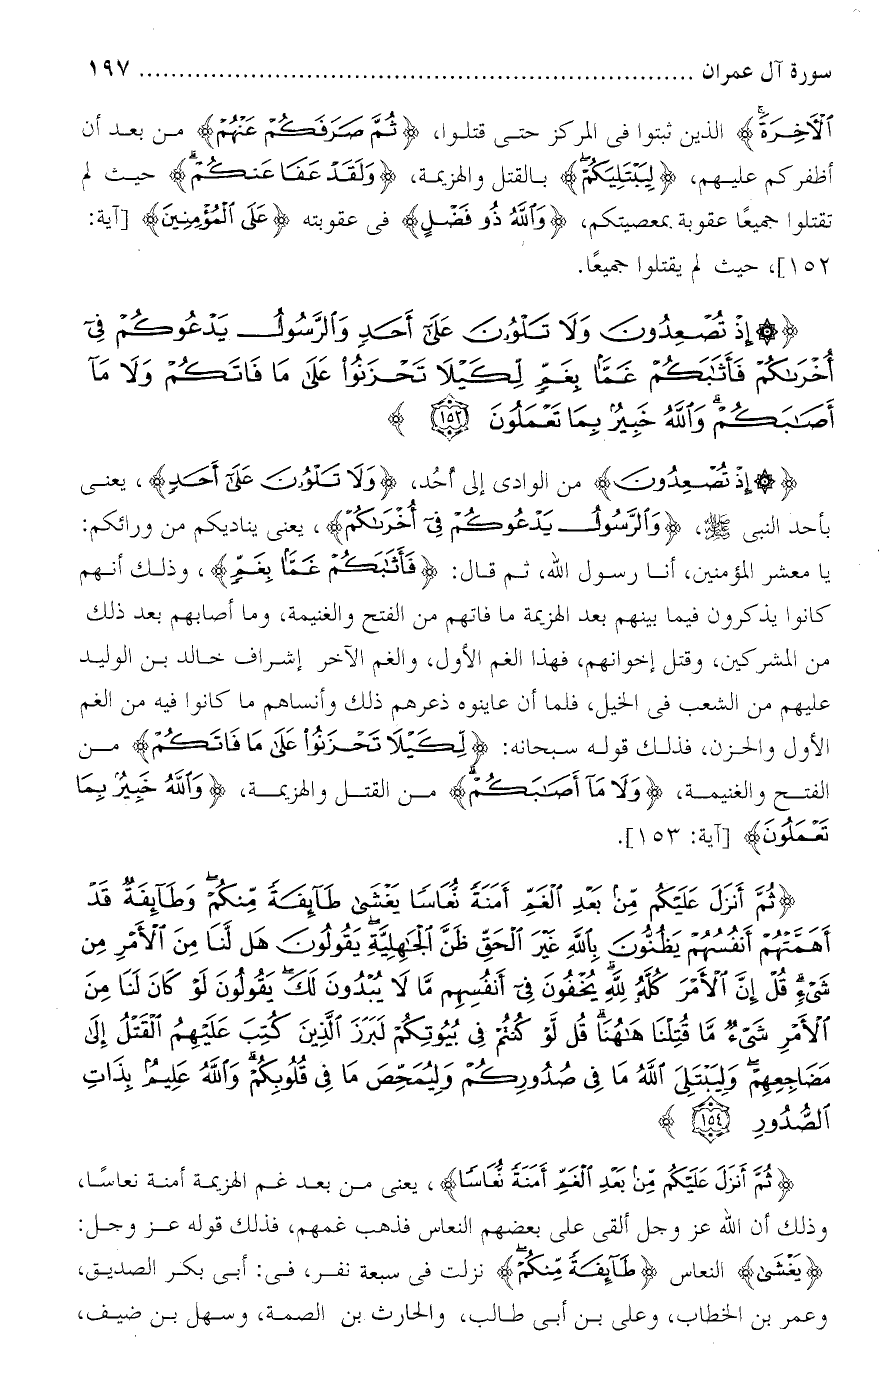 سورة آل عمران ........................................................................ ١٩٧
ٱلْآخِرَةَ﴾ الذين ثبتوا فى المركز حتى قتلوا، ﴿ثُمَّ صَرَفَكُمْ عَنْهُمْ﴾ من بعد أن
أظفركم عليهم، ﴿لِيَبْتَلِيَكُمْ﴾ بالقتل والهزيمة، ﴿وَلَقَدْ عَفَا عَنكُمْ﴾ حيث لم
تقتلوا جميعًا عقوبة بمعصيتكم، ﴿وَٱللَّهُ ذُو فَضْلٍ﴾ فى عقوبته ﴿عَلَى ٱلْمُؤْمِنِينَ﴾ [آية:
١٥٢]، حيث لم يقتلوا جميعًا.
﴿۞ إِذْ تُصْعِدُونَ وَلَا تَلْوُۥنَ عَلَىٰٓ أَحَدٍ وَٱلرَّسُولُ يَدْعُوكُمْ فِىٓ
أُخْرَىٰكُمْ فَأَثَٰبَكُمْ غَمًّۢا بِغَمٍّ لِّكَيْلَا تَحْزَنُوا۟ عَلَىٰ مَا فَاتَكُمْ وَلَا مَآ
أَصَٰبَكُمْ ۗ وَٱللَّهُ خَبِيرٌۢ بِمَا تَعْمَلُونَ ١٥٣ ﴾
﴿۞ إِذْ تُصْعِدُونَ﴾ من الوادى إلى أحُد، ﴿وَلَا تَلْوُۥنَ عَلَىٰٓ أَحَدٍ﴾، يعنى
بأحد النبى ﷺ، ﴿وَٱلرَّسُولُ يَدْعُوكُمْ فِىٓ أُخْرَىٰكُمْ﴾، يعنى يناديكم من ورائكم:
يا معشر المؤمنين، أنا رسول الله، ثم قال: ﴿فَأَثَٰبَكُمْ غَمًّۢا بِغَمٍّ﴾، وذلك أنهم
كانوا يذكرون فيما بينهم بعد الهزيمة ما فاتهم من الفتح والغنيمة، وما أصابهم بعد ذلك
من المشركين، وقتل إخوانهم، فهذا الغم الأول، والغم الآخر إشراف خالد بن الوليد
عليهم من الشعب فى الخيل، فلما أن عاينوه ذعرهم ذلك وأنساهم ما كانوا فيه من الغم
الأول والحزن، فذلك قوله سبحانه: ﴿لِّكَيْلَا تَحْزَنُوا۟ عَلَىٰ مَا فَاتَكُمْ﴾ من
الفتح والغنيمة، ﴿وَلَا مَآ أَصَٰبَكُمْ ۗ﴾ من القتل والهزيمة، ﴿وَٱللَّهُ خَبِيرٌۢ بِمَا
تَعْمَلُونَ﴾ [آية: ١٥٣].
﴿ثُمَّ أَنزَلَ عَلَيْكُم مِّنۢ بَعْدِ ٱلْغَمِّ أَمَنَةً نُّعَاسًا يَغْشَىٰ طَآئِفَةً مِّنكُمْ ۖ وَطَآئِفَةٌ قَدْ
أَهَمَّتْهُمْ أَنفُسُهُمْ يَظُنُّونَ بِٱللَّهِ غَيْرَ ٱلْحَقِّ ظَنَّ ٱلْجَٰهِلِيَّةِ ۖ يَقُولُونَ هَل لَّنَا مِنَ ٱلْأَمْرِ مِن
شَىْءٍ ۗ قُلْ إِنَّ ٱلْأَمْرَ كُلَّهُۥ لِلَّهِ ۗ يُخْفُونَ فِىٓ أَنفُسِهِم مَّا لَا يُبْدُونَ لَكَ ۖ يَقُولُونَ لَوْ كَانَ لَنَا مِنَ
ٱلْأَمْرِ شَىْءٌ مَّا قُتِلْنَا هَٰهُنَا ۗ قُل لَّوْ كُنتُمْ فِى بُيُوتِكُمْ لَبَرَزَ ٱلَّذِينَ كُتِبَ عَلَيْهِمُ ٱلْقَتْلُ إِلَىٰ
مَضَاجِعِهِمْ ۖ وَلِيَبْتَلِىَ ٱللَّهُ مَا فِى صُدُورِكُمْ وَلِيُمَحِّصَ مَا فِى قُلُوبِكُمْ ۗ وَٱللَّهُ عَلِيمٌۢ بِذَاتِ
ٱلصُّدُورِ ١٥٤ ﴾
﴿ثُمَّ أَنزَلَ عَلَيْكُم مِّنۢ بَعْدِ ٱلْغَمِّ أَمَنَةً نُّعَاسًا﴾، يعنى من بعد غم الهزيمة أمنة نعاسًا،
وذلك أن الله عز وجل ألقى على بعضهم النعاس فذهب غمهم، فذلك قوله عز وجل:
﴿يَغْشَىٰ﴾ النعاس ﴿طَآئِفَةً مِّنكُمْ ۖ﴾ نزلت فى سبعة نفر، فى: أبى بكر الصديق،
وعمر بن الخطاب، وعلى بن أبى طالب، والحارث بن الصمة، وسهل بن ضيف،